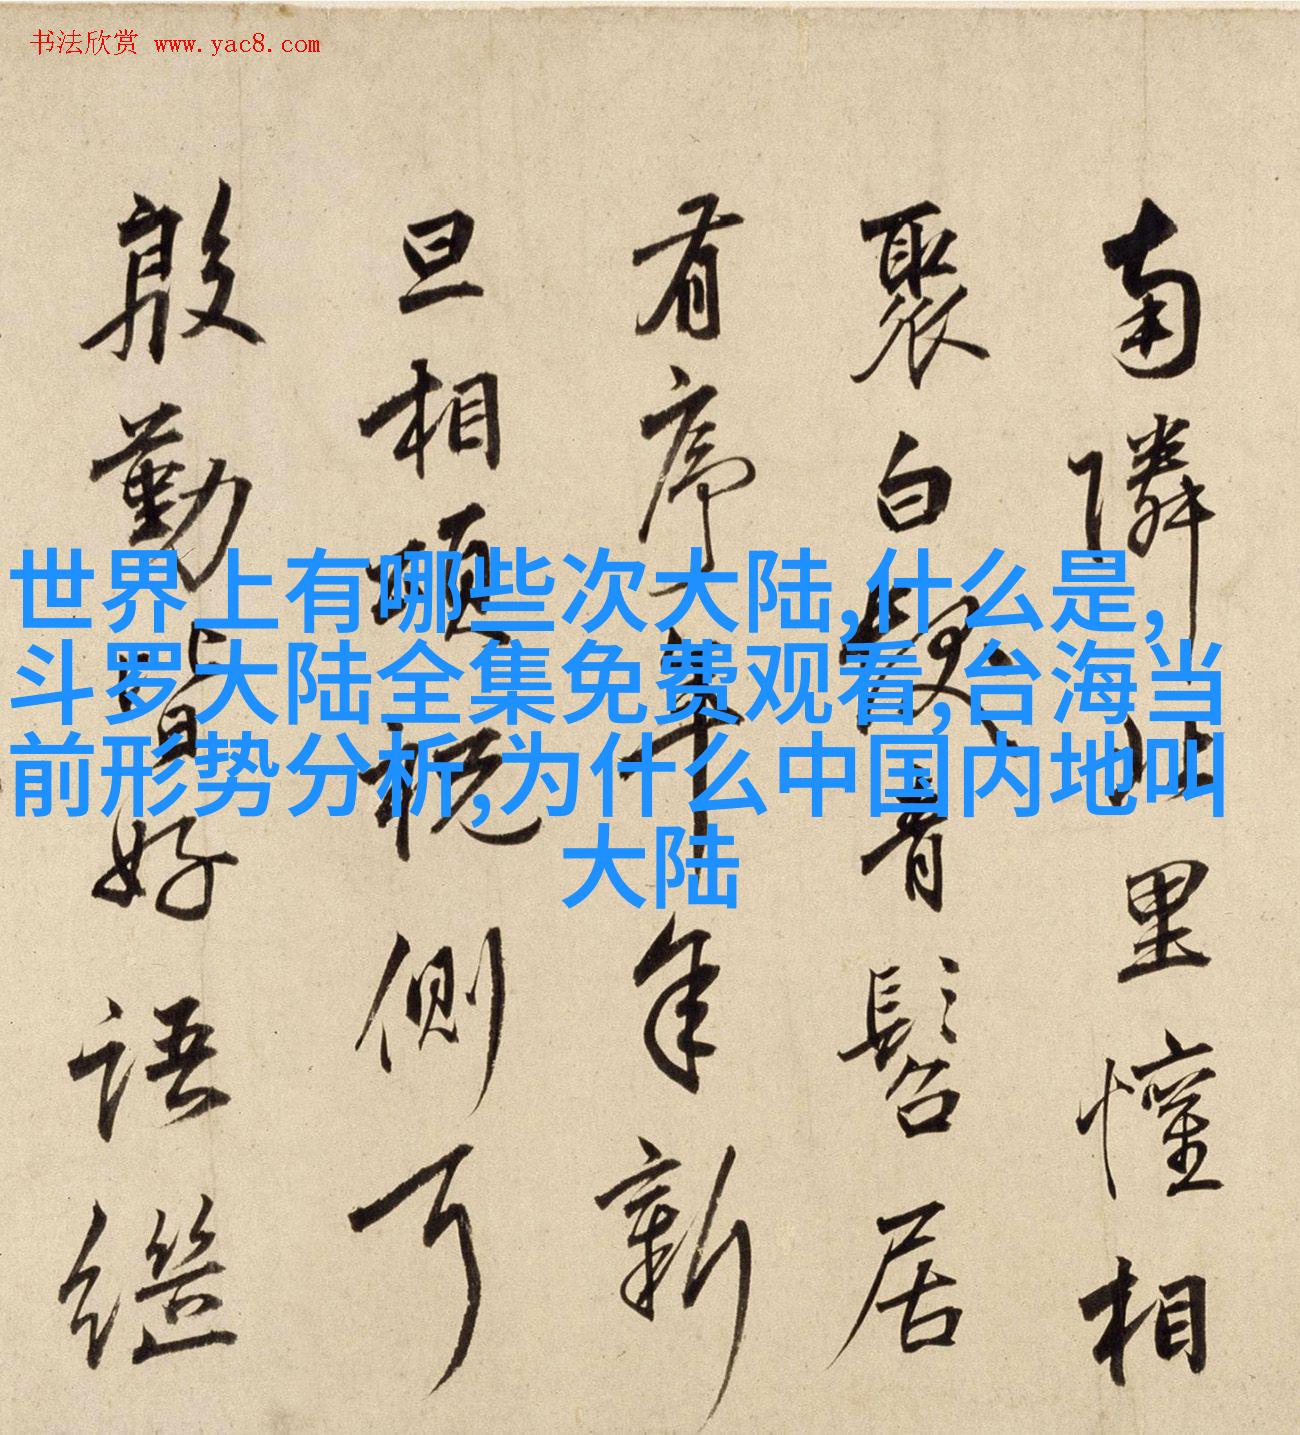 书法欣赏 www.yac8.com
南隣北里懽相
聚白髮青髫居
有序年年新
旦相頌祝側耳
殷勤皆好語繼
世界上有哪些次大陆,什么是,
斗罗大陆全集免费观看,台海当
前形势分析,为什么中国内地叫
大陆